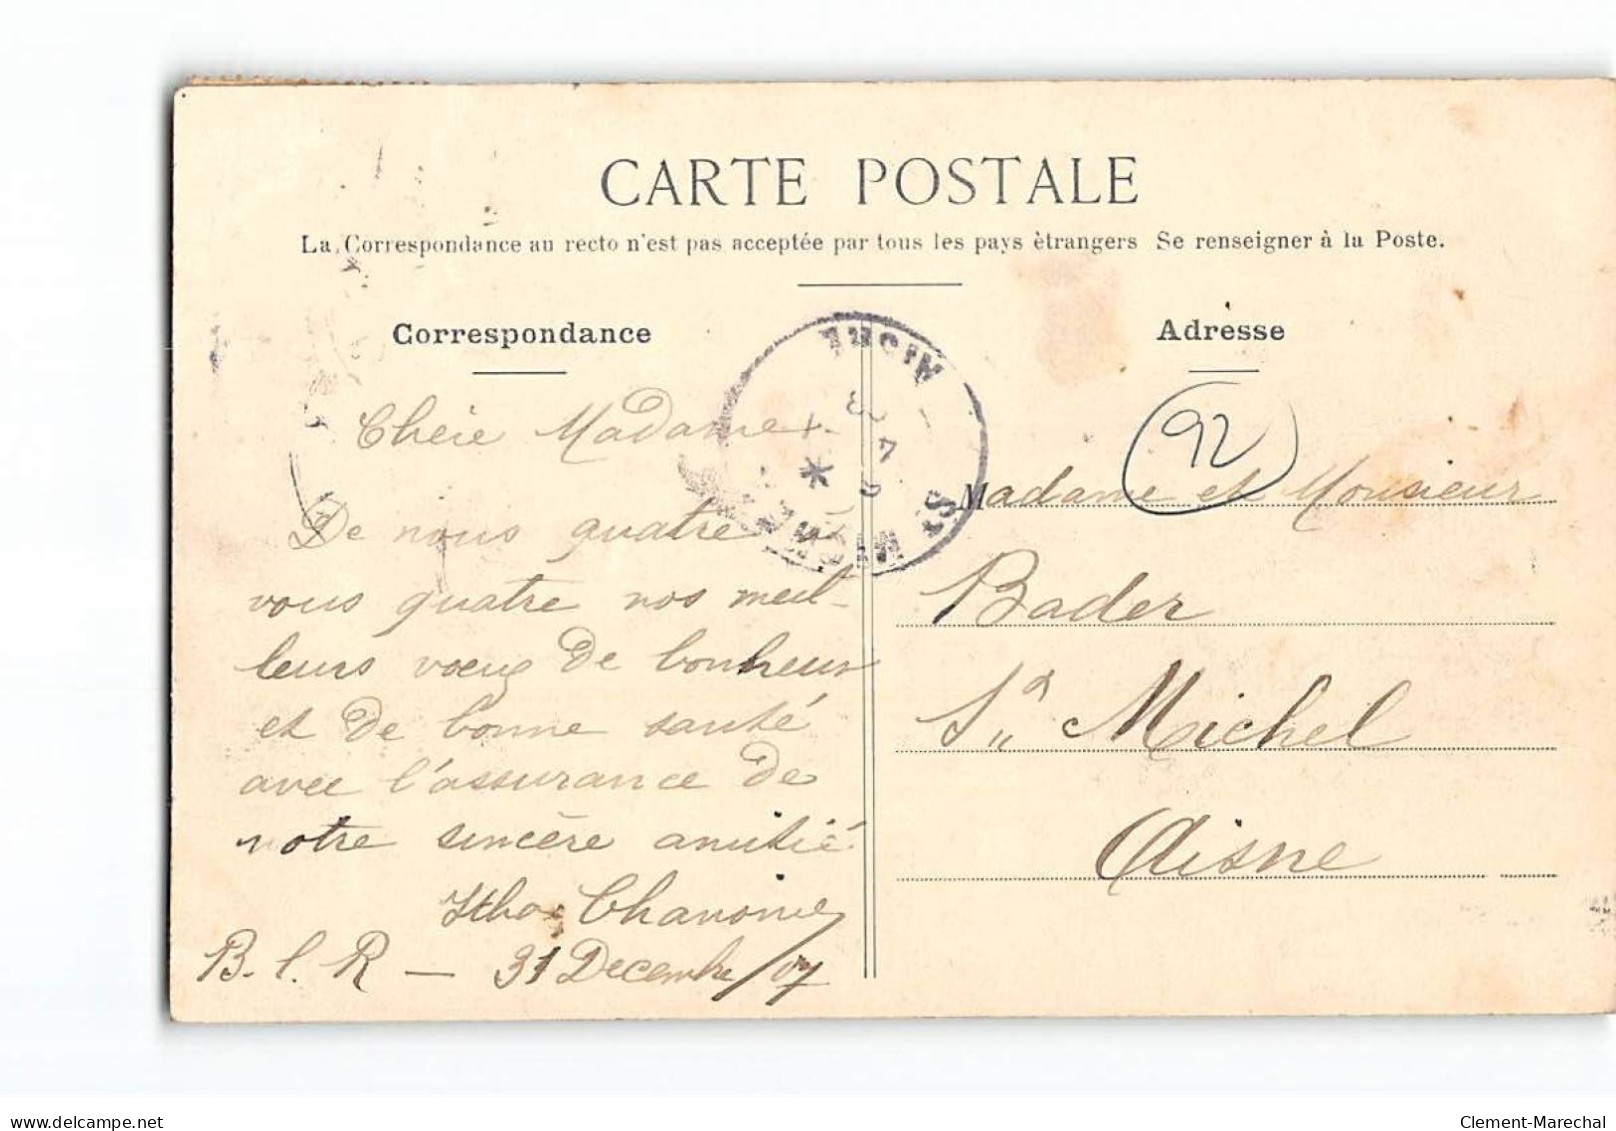 CARTE POSTALE
La Correspondance au recto n'est pas acceptée par tous les pays ètrangers Se renseigner à la Poste.
Correspondance
Chère Madame
De nous quatre à
vous quatre nos meil-
leurs vœux de bonheur
et de bonne santé
avec l'assurance de
notre sincère amitié.
Chanoine
B. l. R — 31 Decembre / 07
AISNE
ST MICHEL
Adresse
92
Madame et Monsieur
Bader
St Michel
Aisne
delcampe.net
Clement-Marechal